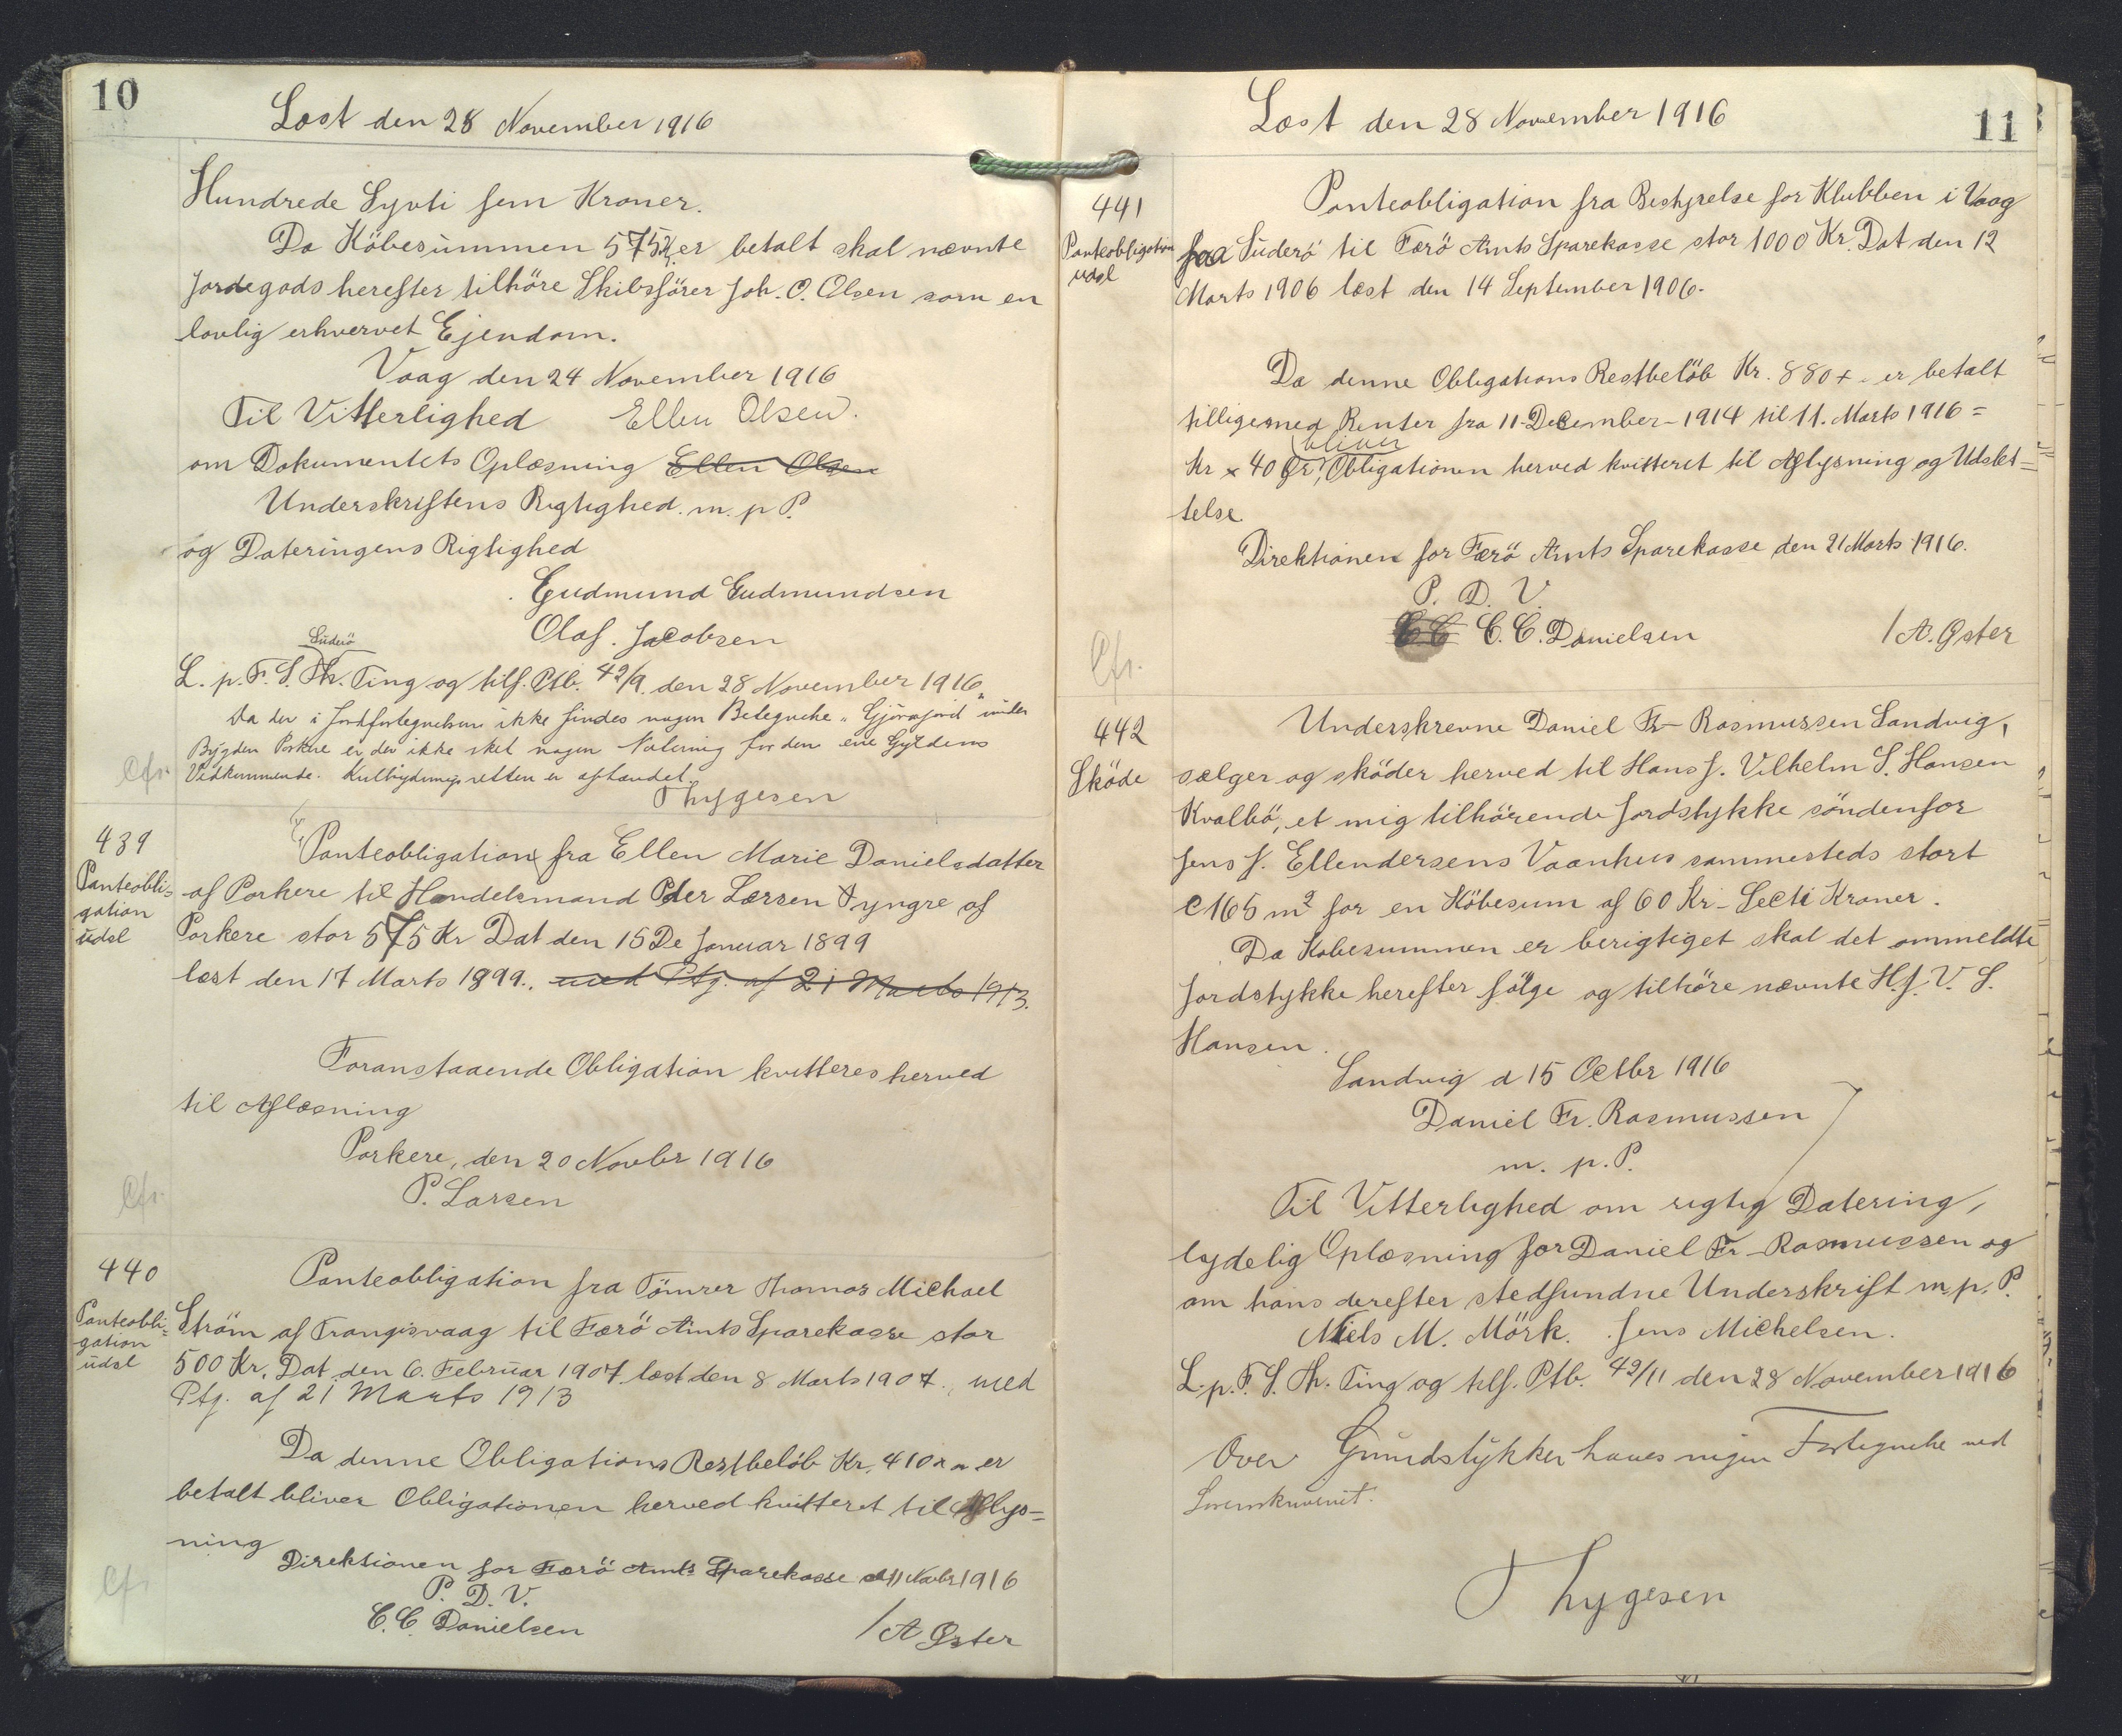 10
Læst den 28 November 1916
Hundrede Syvti fem Kroner.
Da Köbesummen 575 Kr er betalt skal nævnte
Jordegods herefter tilhöre Skibsförer Joh. O. Olsen som en
lovlig erhvervet Ejendom.
Vaag den 24 November 1916
Til Vitterlighed Ellen Olsen.
om Dokumentets Oplæsning Ellen Olsen
Underskriftens Rigtighed. m. p P.
og Dateringens Rigtighed
Gudmund Gudmundsen
Olaf. Jacobsen
Suderö
L. p. F. S. Th. Ting og tilf. Ptb. 42/9. den 28 November 1916.
Da der i Jordfortegnelsen ikke findes nogen Betegnelse "Gjörafjord" under
Bygden Porkere er der ikke sket nogen Notering for den ene Gyldens
Vedkommende. Kulbrydningsretten er afhændet.
Cfr.
Thygesen
439
Panteobli-
gation
udsl
Panteobligation fra Ellen Marie Danielsdatter
af Porkere til Handelsmand Peder Larsen d yngre af
Porkere stor 575 Kr Dat den 15 De Januar 1899
læst den 17 Marts 1899., med Ptg. af 21 Marts 1913.
Foranstaaende Obligation kvitteres herved
til Aflæsning
Porkere, den 20 Novbr 1916
P. Larsen
Cfr.
440
Panteobli-
gation
udsl
Panteobligation fra Tömrer Thomas Michael
Ström af Trangisvaag til Færö Amts Sparekasse stor
500 Kr. Dat den 6. Februar 1907 læst den 8 Marts 1907., med
Ptg. af 21 Marts 1913
Da denne Obligations Restbelöb Kr. 410 x " er
betalt bliver Obligationen herved kvitteret til Aflys=
ning
Direktionen for Færö Amts Sparekasse d 11 Novbr 1916
P. D. V.
C. C. Danielsen / A Öster
Cfr
11
Læst den 28 November 1916
441
Panteobligation
udsl
Panteobligation fra Bestyrelse for Klubben i Vaag
paa Suderö til Færö Amts Sparekasse stor 1000 Kr. Dat den 12
Marts 1906 læst den 14 September 1906.
Da denne Obligations Restbelöb Kr. 880 + - er betalt
tilligemed Renter fra 11 December - 1914 til 11. Marts 1916 =
bliver
Kr x 40 Ör, Obligationen herved kvitteret til Aflysning og Udslet=
telse.
Direktionen for Færö Amts Sparekasse den 21 Marts 1916.
P. D. V.
C C C. C. Danielsen / A. Öster
Cfr.
442
Sköde
Underskrevne Daniel Fr - Rasmussen Sandvig,
sælger og sköder herved til Hans J. Vilhelm S. Hansen
Kvalbö, et mig tilhörende Jordstykke söndenfor
Jens J. Ellendersens Vaanhus sammesteds stort
c 165 m2 for en Köbesum af 60 Kr - Secti Kroner.
Da Kobesummen er berigtiget skal det ommeldte
Jordstykke herefter fölge og tilhöre nævnte H. J. V. S.
Hansen.
Sandvig d 15 Octbr 1916
Daniel Fr. Rasmussen
m. p. P.
Til Vitterlighed om rigtig Datering,
lydelig Oplæsning for Daniel Fr - Rasmussen og
om hans derefter stedfundne Underskrift m. p. P.
Niels M. Mörk. Jens Michelsen.
L. p. F. S. Th. Ting og tilf. Ptb. 42/11 den 28 November 1916
Over Grundstykker haves ingen Fortegnelse ved
Sorenskriveriet.
Thygesen